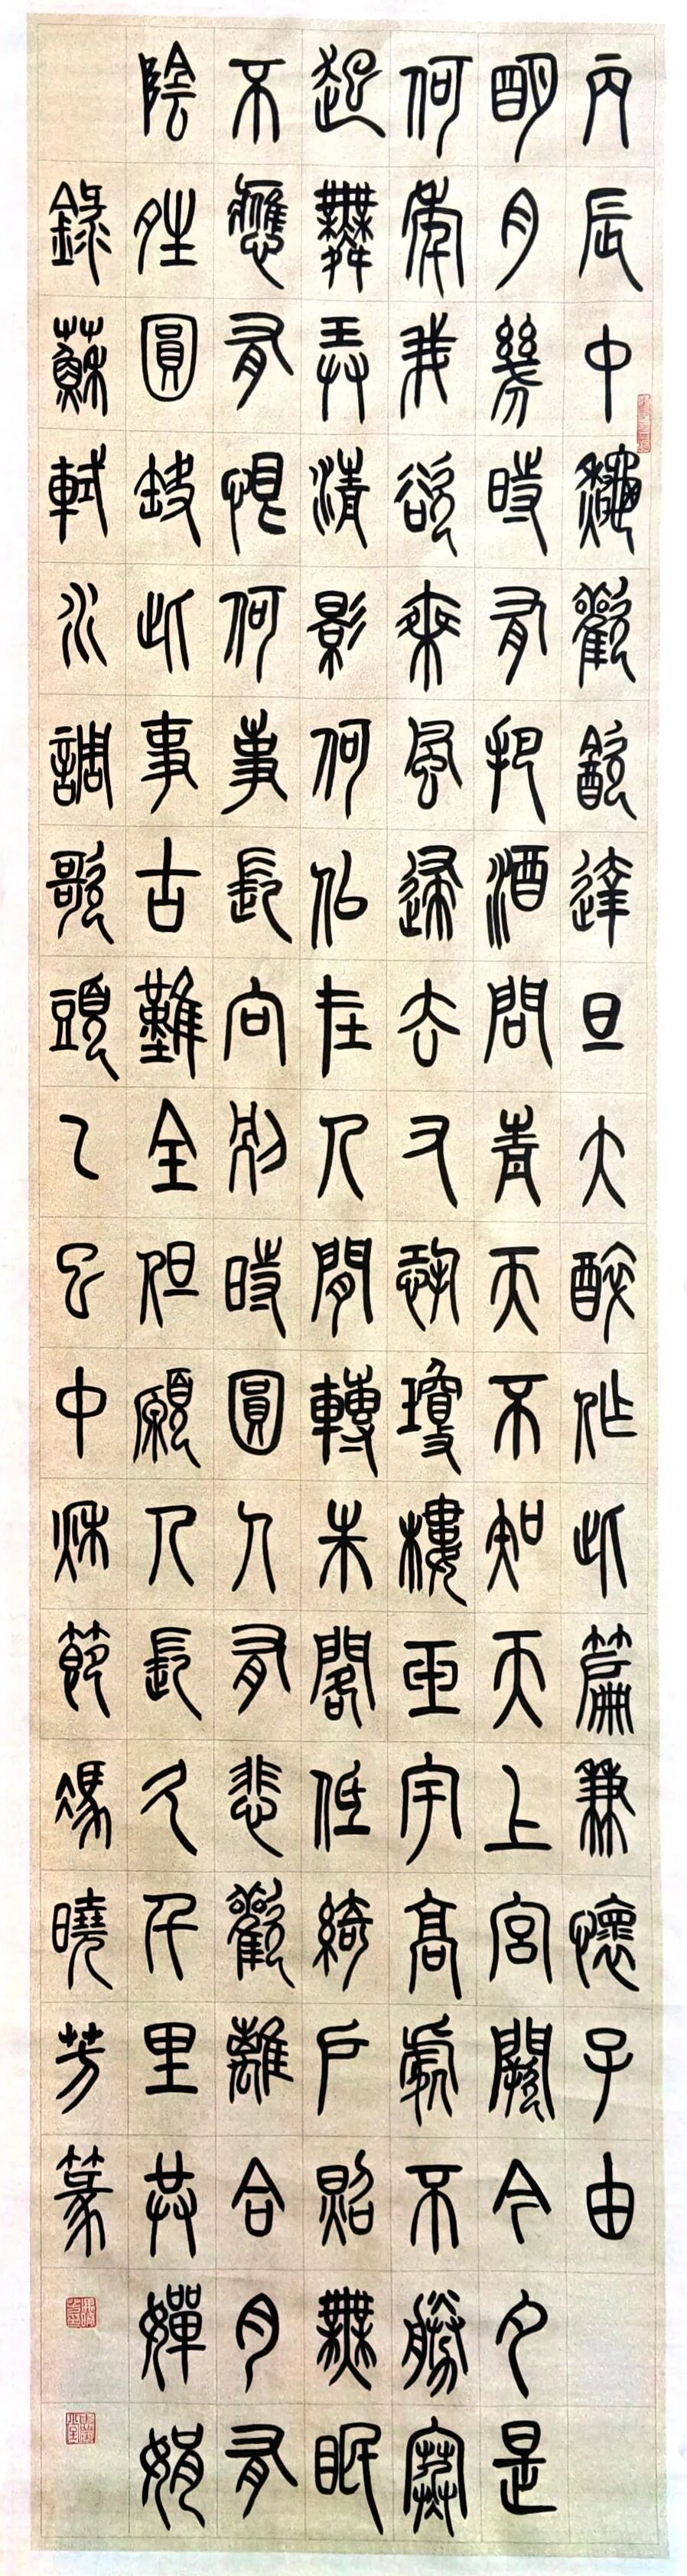 丙辰中龝歡飲達旦大醉作此篇兼懷子由
明月幾時有把酒問青天不知天上宮闕今夕是
何年我欲乘風歸去又恐瓊樓玉宇高處不勝寒
起舞弄清影何似在人間轉朱閣低綺戶照無眠
不應有恨何事長向別時圓人有悲歡離合月有
陰晴圓缺此事古難全但願人長久千里共嬋娟
錄蘇軾水調歌頭乙巳中秋節馮曉芳篆